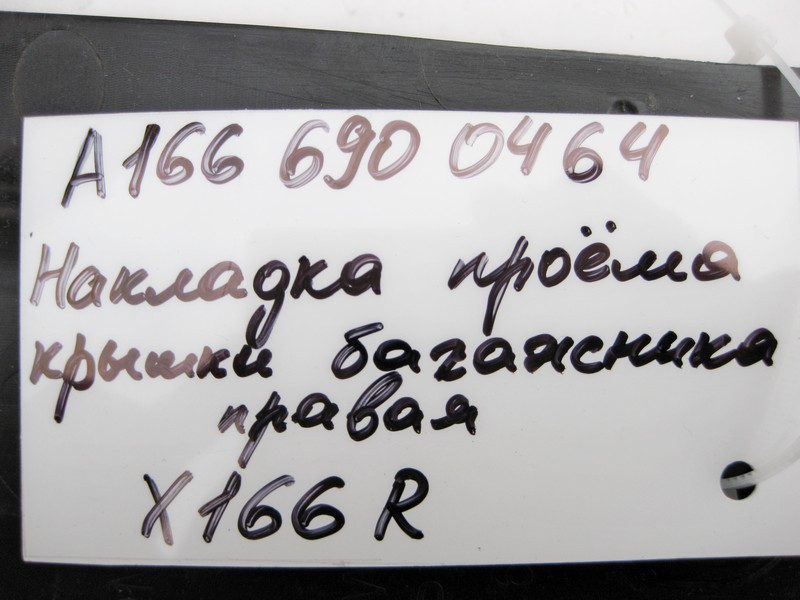 A166 690 0464
Накладка проёма
крышки багажника
правая
X166 R